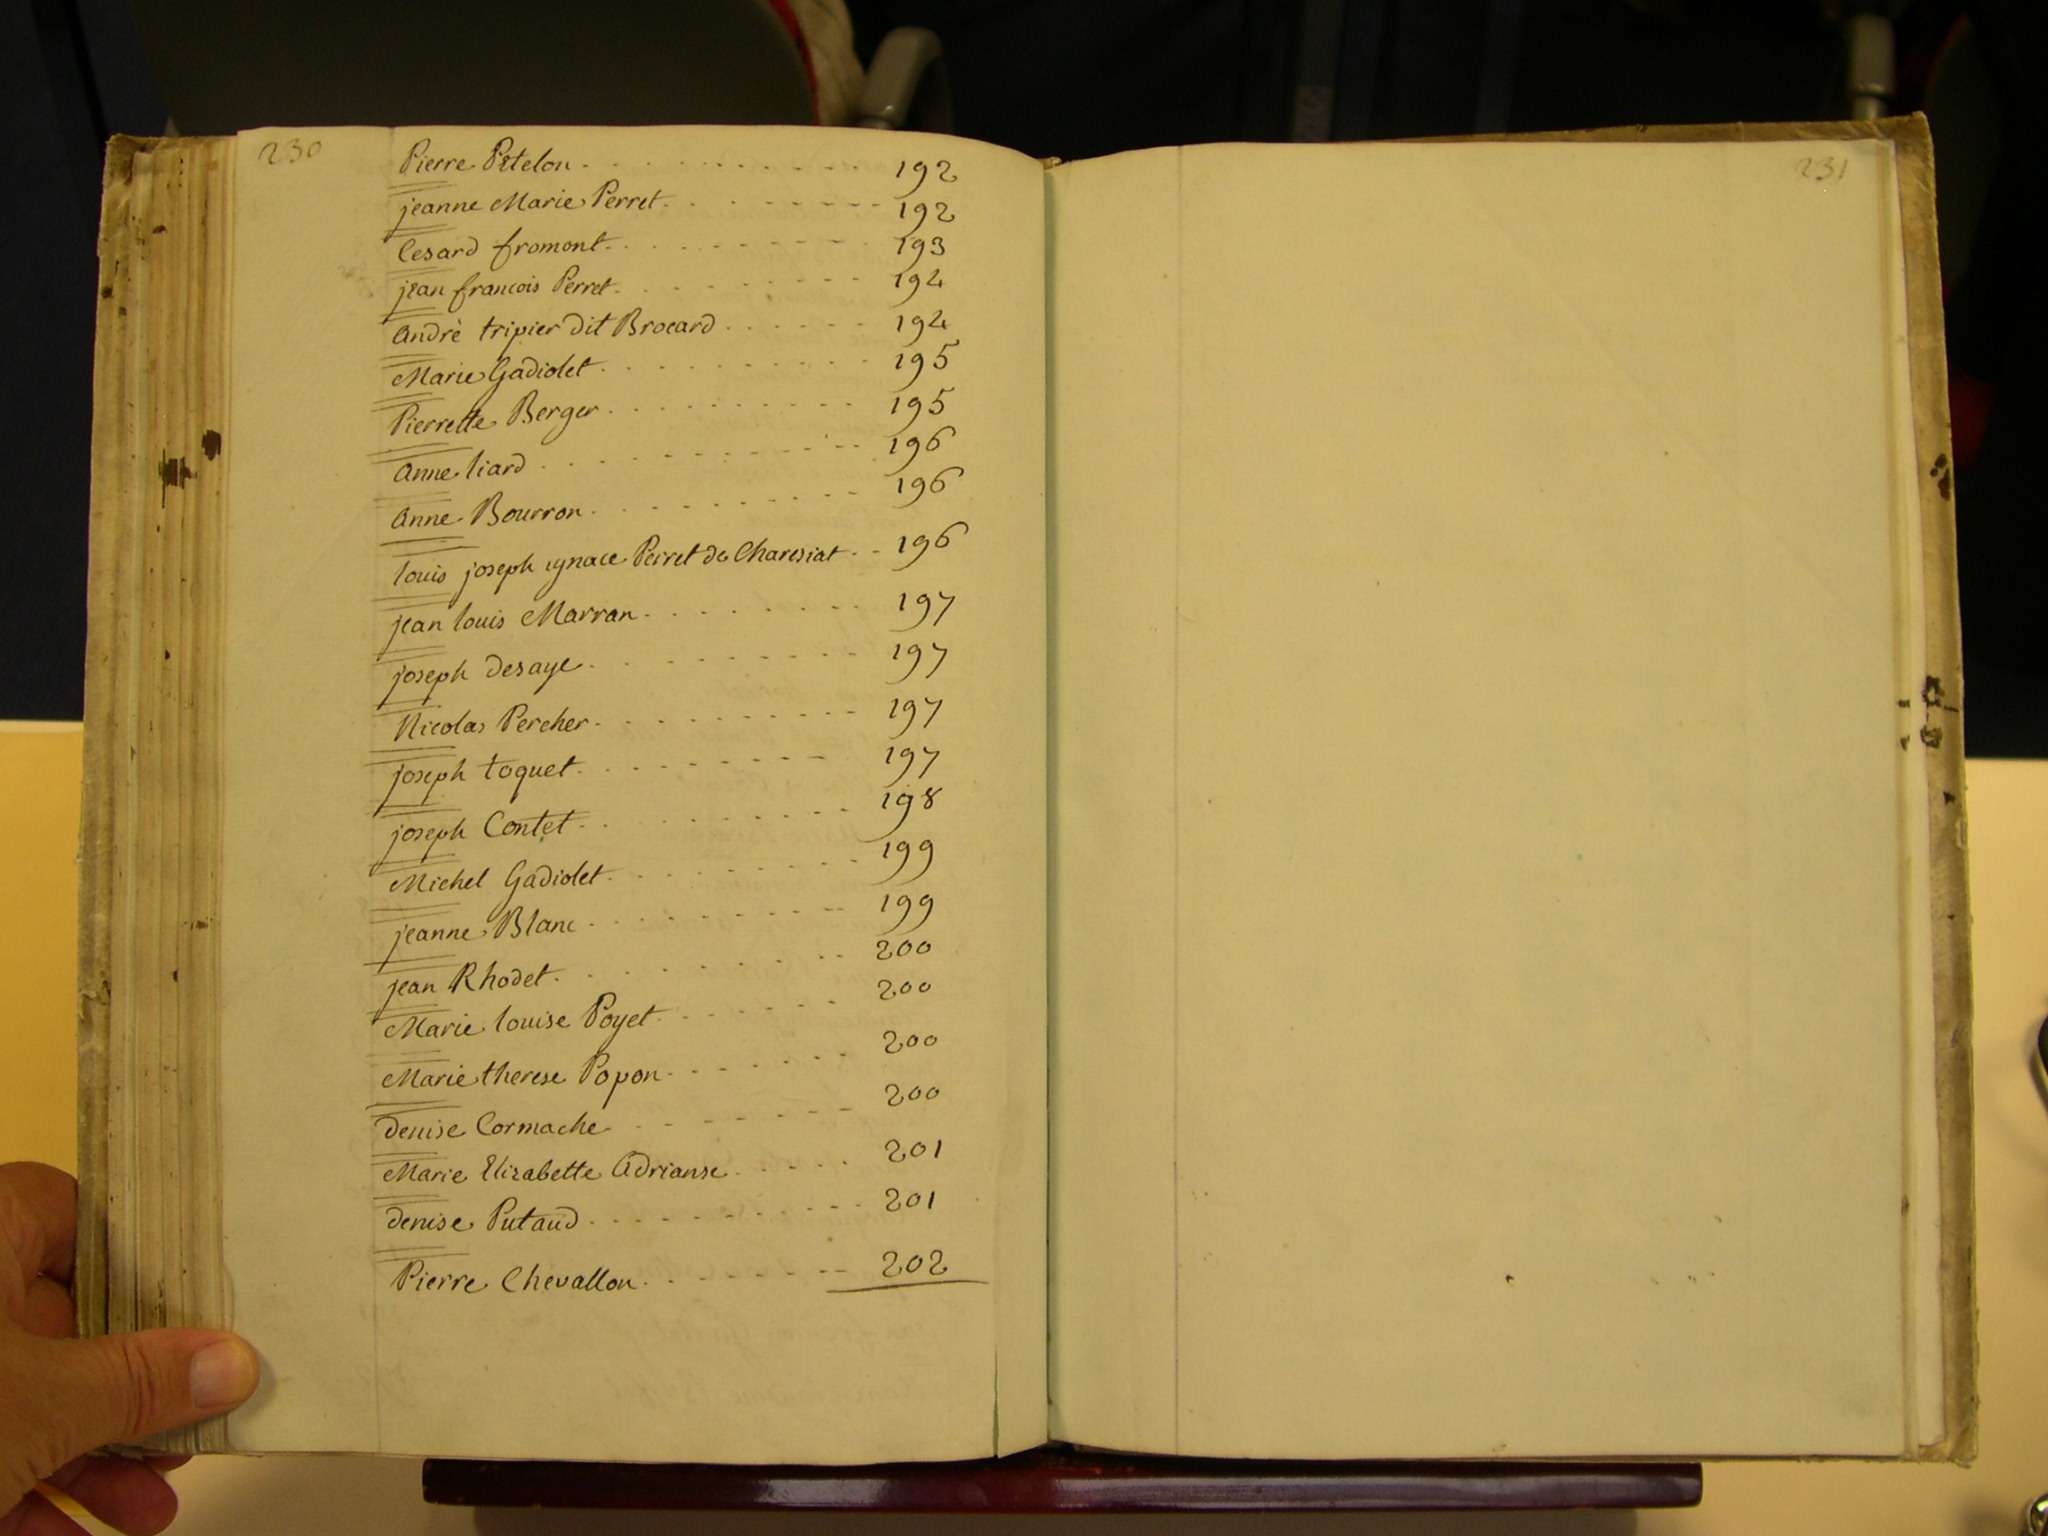 230
Pierre Petelon 192
jeanne Marie Perret 192
Cesard fromont 193
jean francois Perret 194
andrè tripier dit Brocard 194
Marie Gadiolet 195
Pierrette Berger 195
anne liard 196
anne Bourron 196
louis joseph ignace Perret de Charesiat 196
jean louis Marran 197
joseph desaye 197
Nicolas Percher 197
joseph toquet 197
joseph Contet 198
Michel Gadiolet 199
jeanne Blanc 199
jean Rhodet 200
Marie louise Poyet 200
Marie therese Popon 200
denise Cormache 200
Marie Elisabette Adrianse 201
denise Putaud 201
Pierre Chevallon 202
231